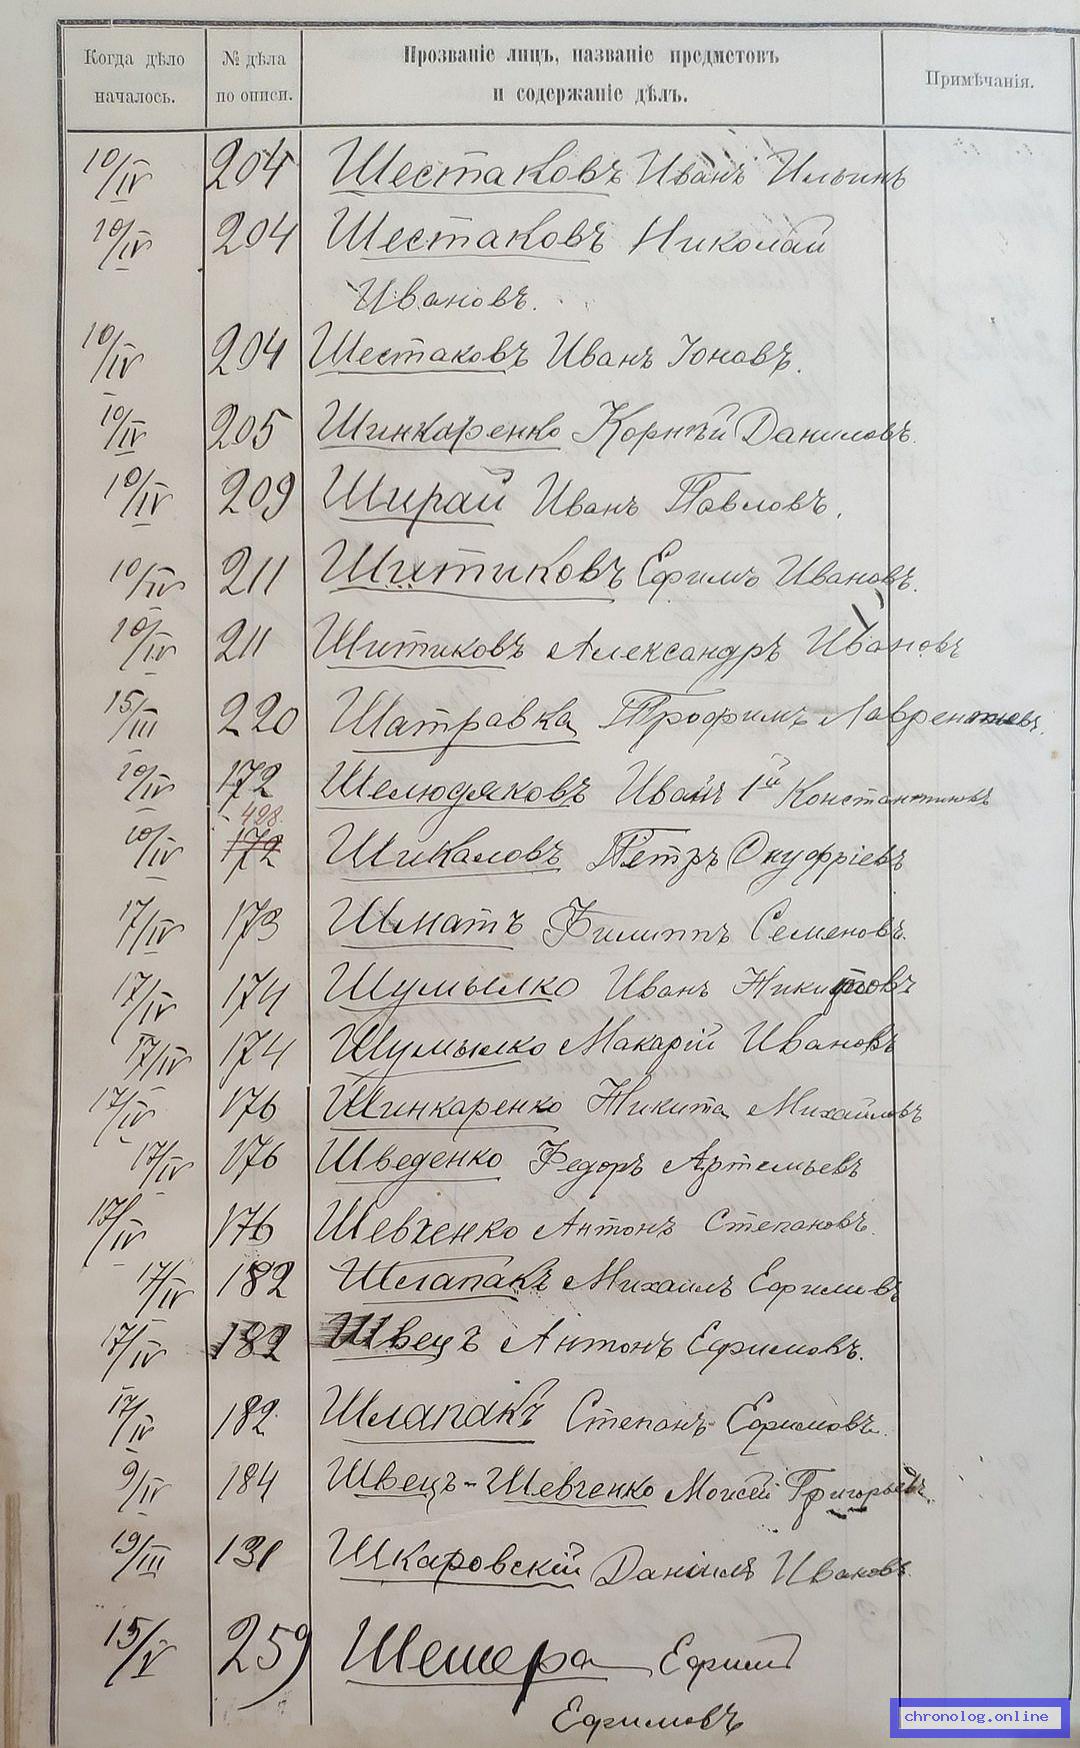 Когда дѣло началось. № дѣла по описи. Прозваніе лицъ, названіе предметовъ и содержаніе дѣлъ. Примѣчанія.
10/IV 204 Шестаковъ Иванъ Ильинъ
10/IV 204 Шестаковъ Николай
Ивановъ.
10/IV 204 Шестаковъ Иванъ Іоновъ.
10/IV 205 Шинкаренко Корнѣй Даниловъ.
10/IV 209 Ширай Иванъ Павловъ.
10/IV 211 Шитиковъ Ефимъ Ивановъ.
10/IV 211 Шитиковъ Александръ Ивановъ
15/III 220 Шатравка Трофимъ Лаврентьевъ.
10/IV 172 Шелюдяковъ Иванъ 1й Константиновъ
428.
10/IV 172 Шикаловъ Петръ Онуфріевъ
17/IV 173 Шматъ Филиппъ Семеновъ.
17/IV 174 Шумылко Иванъ Никитовъ
17/IV 174 Шумылко Макарій Ивановъ
17/IV 176 Шинкаренко Никита Михайловъ
17/IV 176 Шведенко Федоръ Артемьевъ
17/IV 176 Шевченко Антонъ Степановъ.
17/IV 182 Шлапакъ Михаилъ Ефимовъ
17/IV 182 Швецъ Антонъ Ефимовъ.
17/IV 182 Шлапакъ Степанъ Ефимовъ.
9/IV 184 Швецъ-Шевченко Моисей Григорьевъ.
19/III 131 Шкаровскій Даніилъ Ивановъ.
15/V 259 Шешера Ефимъ
Ефимовъ
chronolog.online